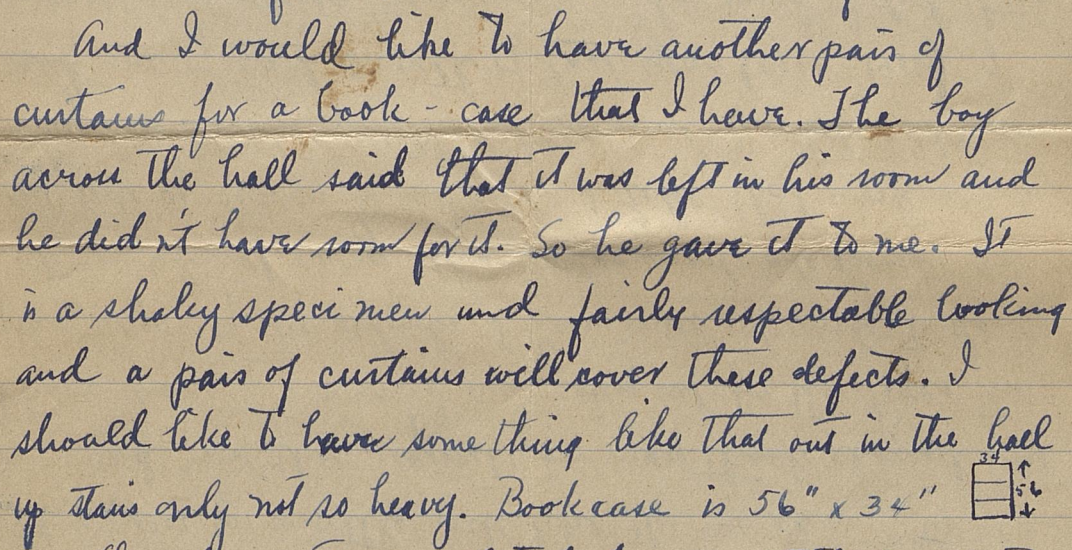 And I would like to have another pair of
curtains for a book - case that I have. The boy
across the hall said that it was left in his room and
he didn't have room for it. So he gave it to me. It
is a shaky specimen and fairly respectable looking
and a pair of curtains will cover these defects. I
should like to have something like that out in the hall
up stairs only not so heavy. Bookcase is 56" x 34"
34
56